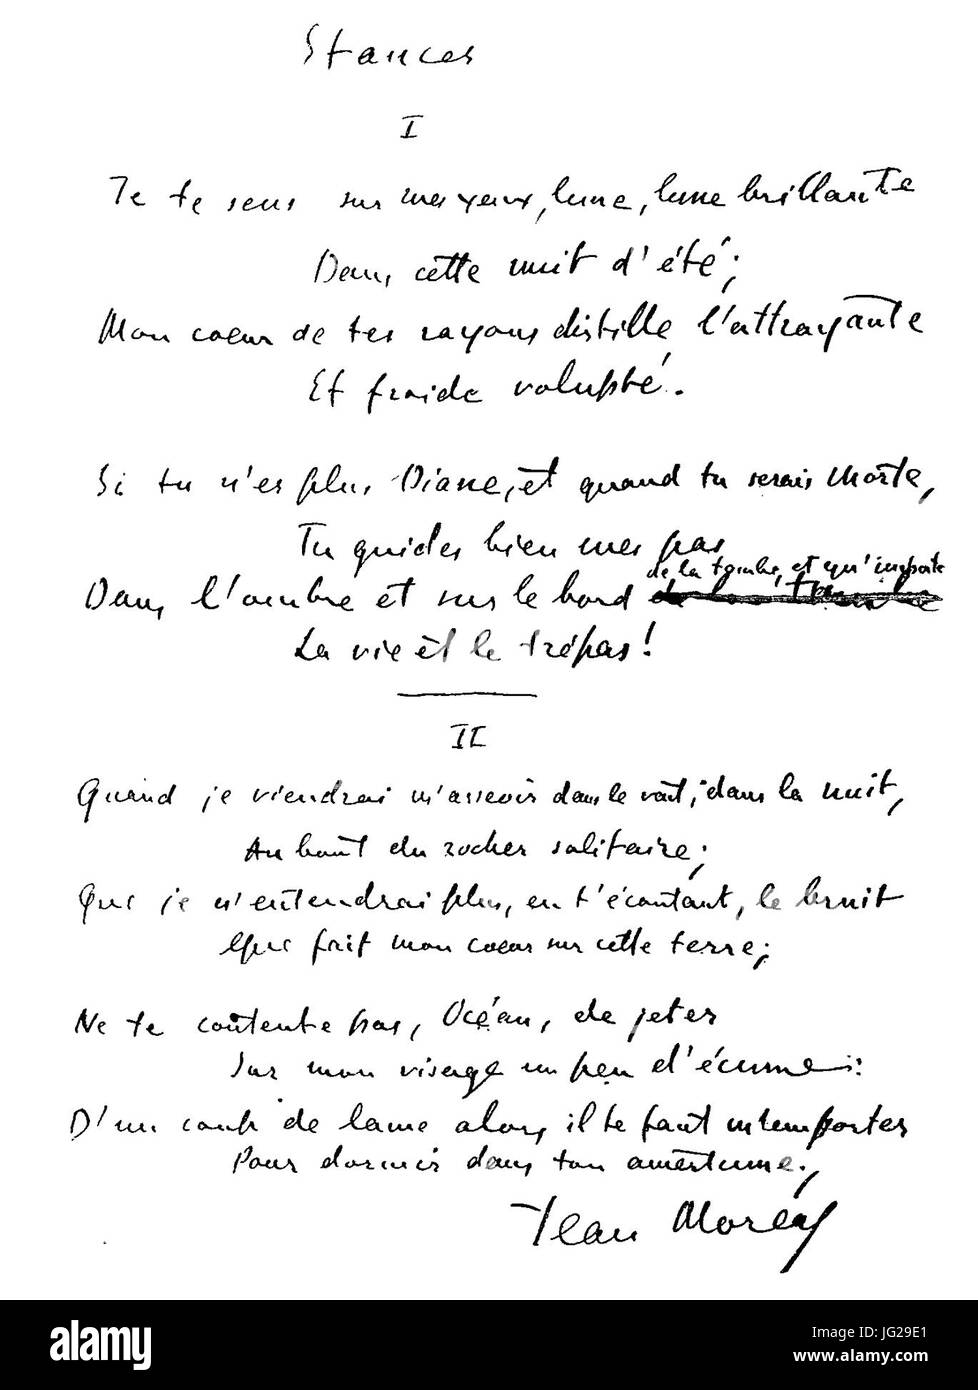 Stances
I
Je te sens sur mes yeux, lune, lune brillante
Dans cette nuit d'été;
Mon coeur de tes rayons distille l'attrayante
Et froide volupté.
Si tu n'es plus Diane, et quand tu serais morte,
Tu guides bien mes pas
de la tombe, et qu'importe
Dans l'ombre et sur le bord
La vie et le trépas!
II
Quand je viendrai m'asseoir dans le vent, dans la nuit,
Au bout du rocher solitaire;
Que je n'entendrai plus, en t'écoutant, le bruit
Que fait mon coeur sur cette terre;
Ne te contente pas, Océan, de jeter
Sur mon visage un peu d'écume:
D'un coup de lame alors il te faut m'emporter
Pour dormir dans ton amertume.
Jean Moréas
alamy
Image ID: JG29E1
www.alamy.com